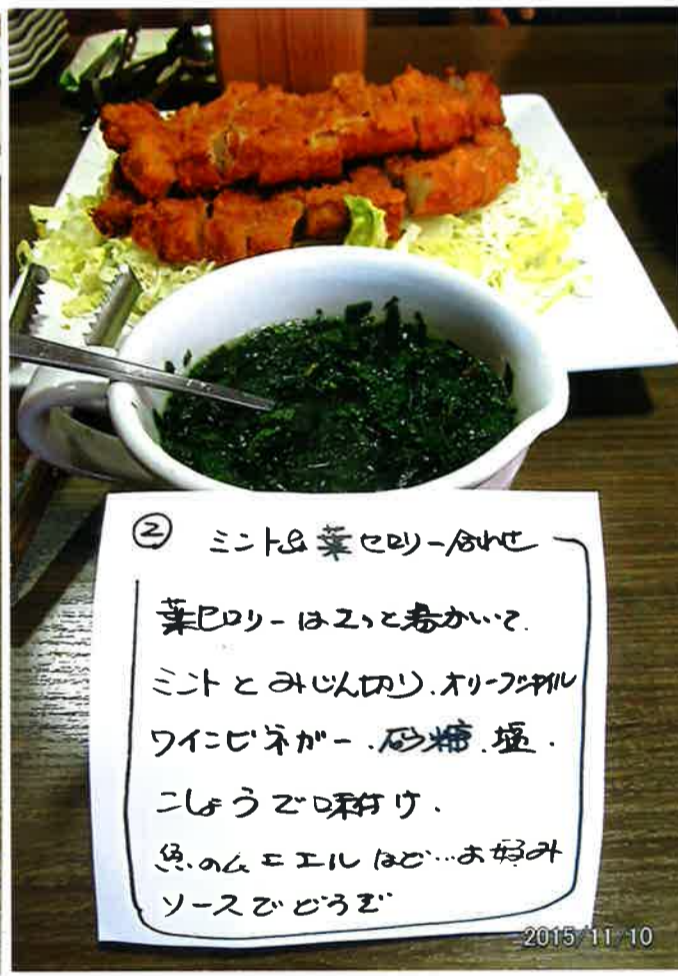 ② ミント&葉セロリー合わせ
葉セロリーはさっと湯がいて.
ミントとみじん切り.オリーブオイル
ワインビネガー.砂糖.塩.
こしょうで味付け.
魚のムニエルなど…お好み
ソースでどうぞ
2015/11/10